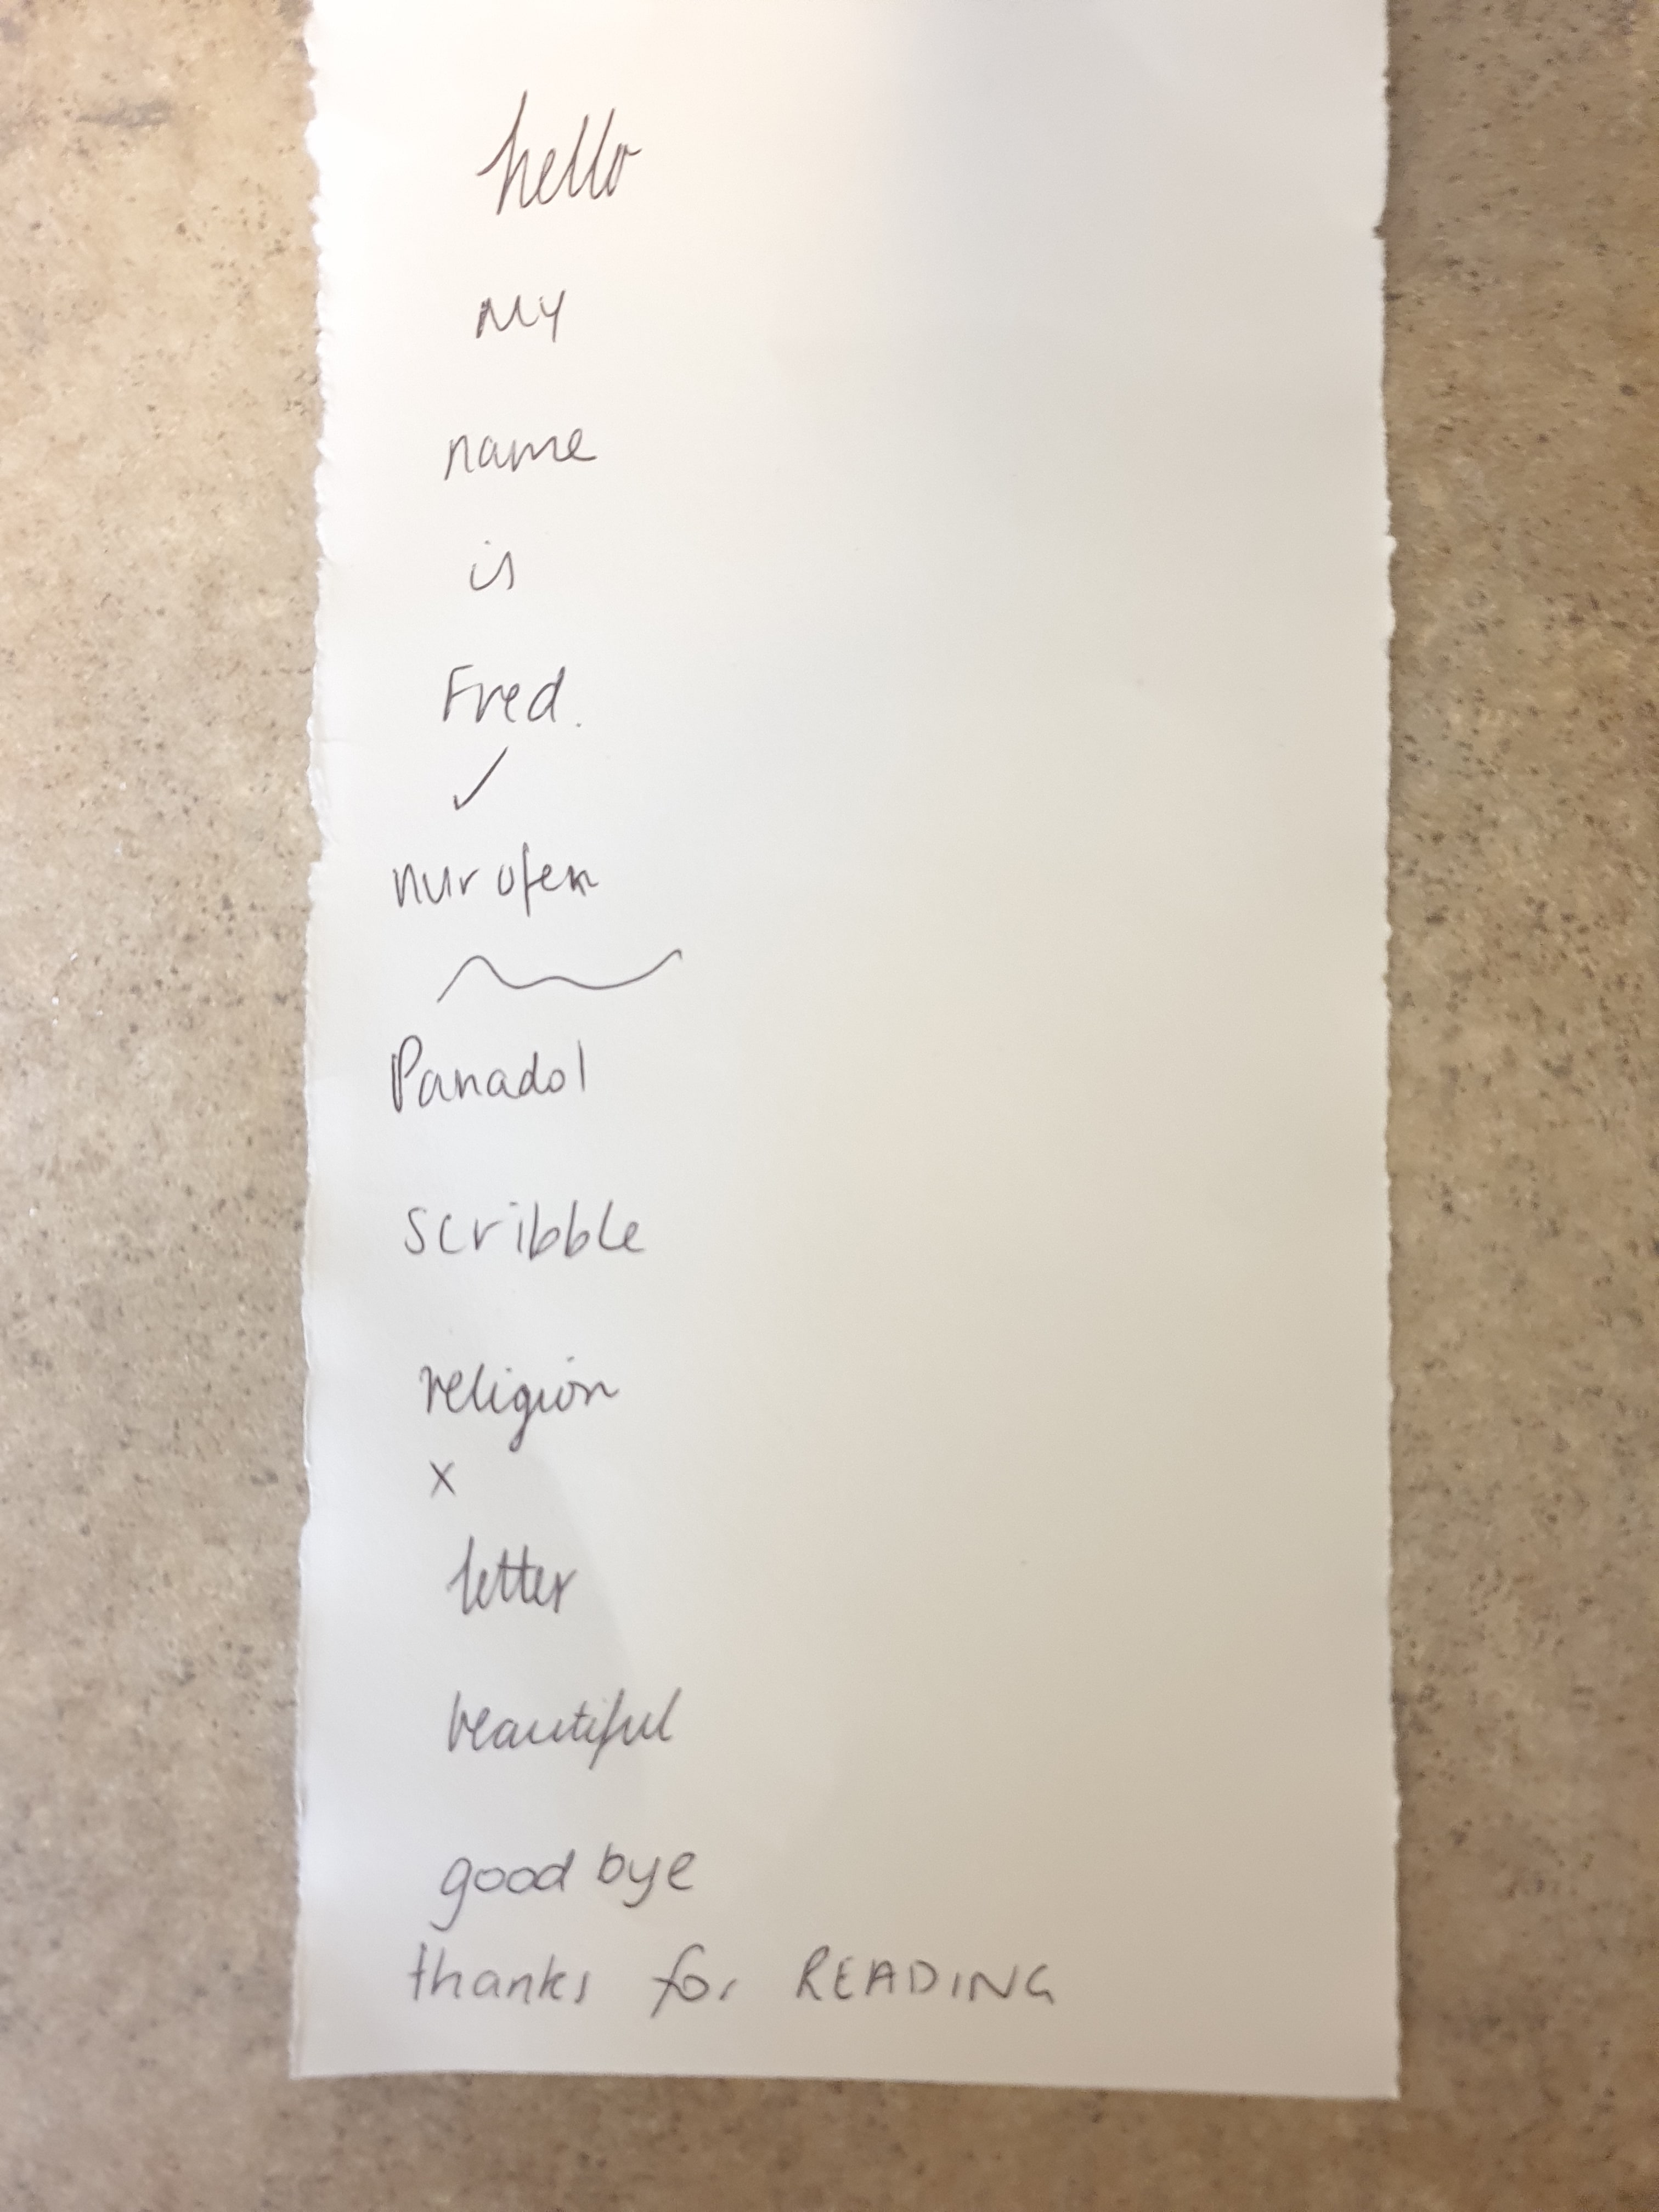 hello
My
name
is
Fred.
✓
nurofen
Panadol
scribble
religion
x
letter
beautiful
good bye
thanks for READING